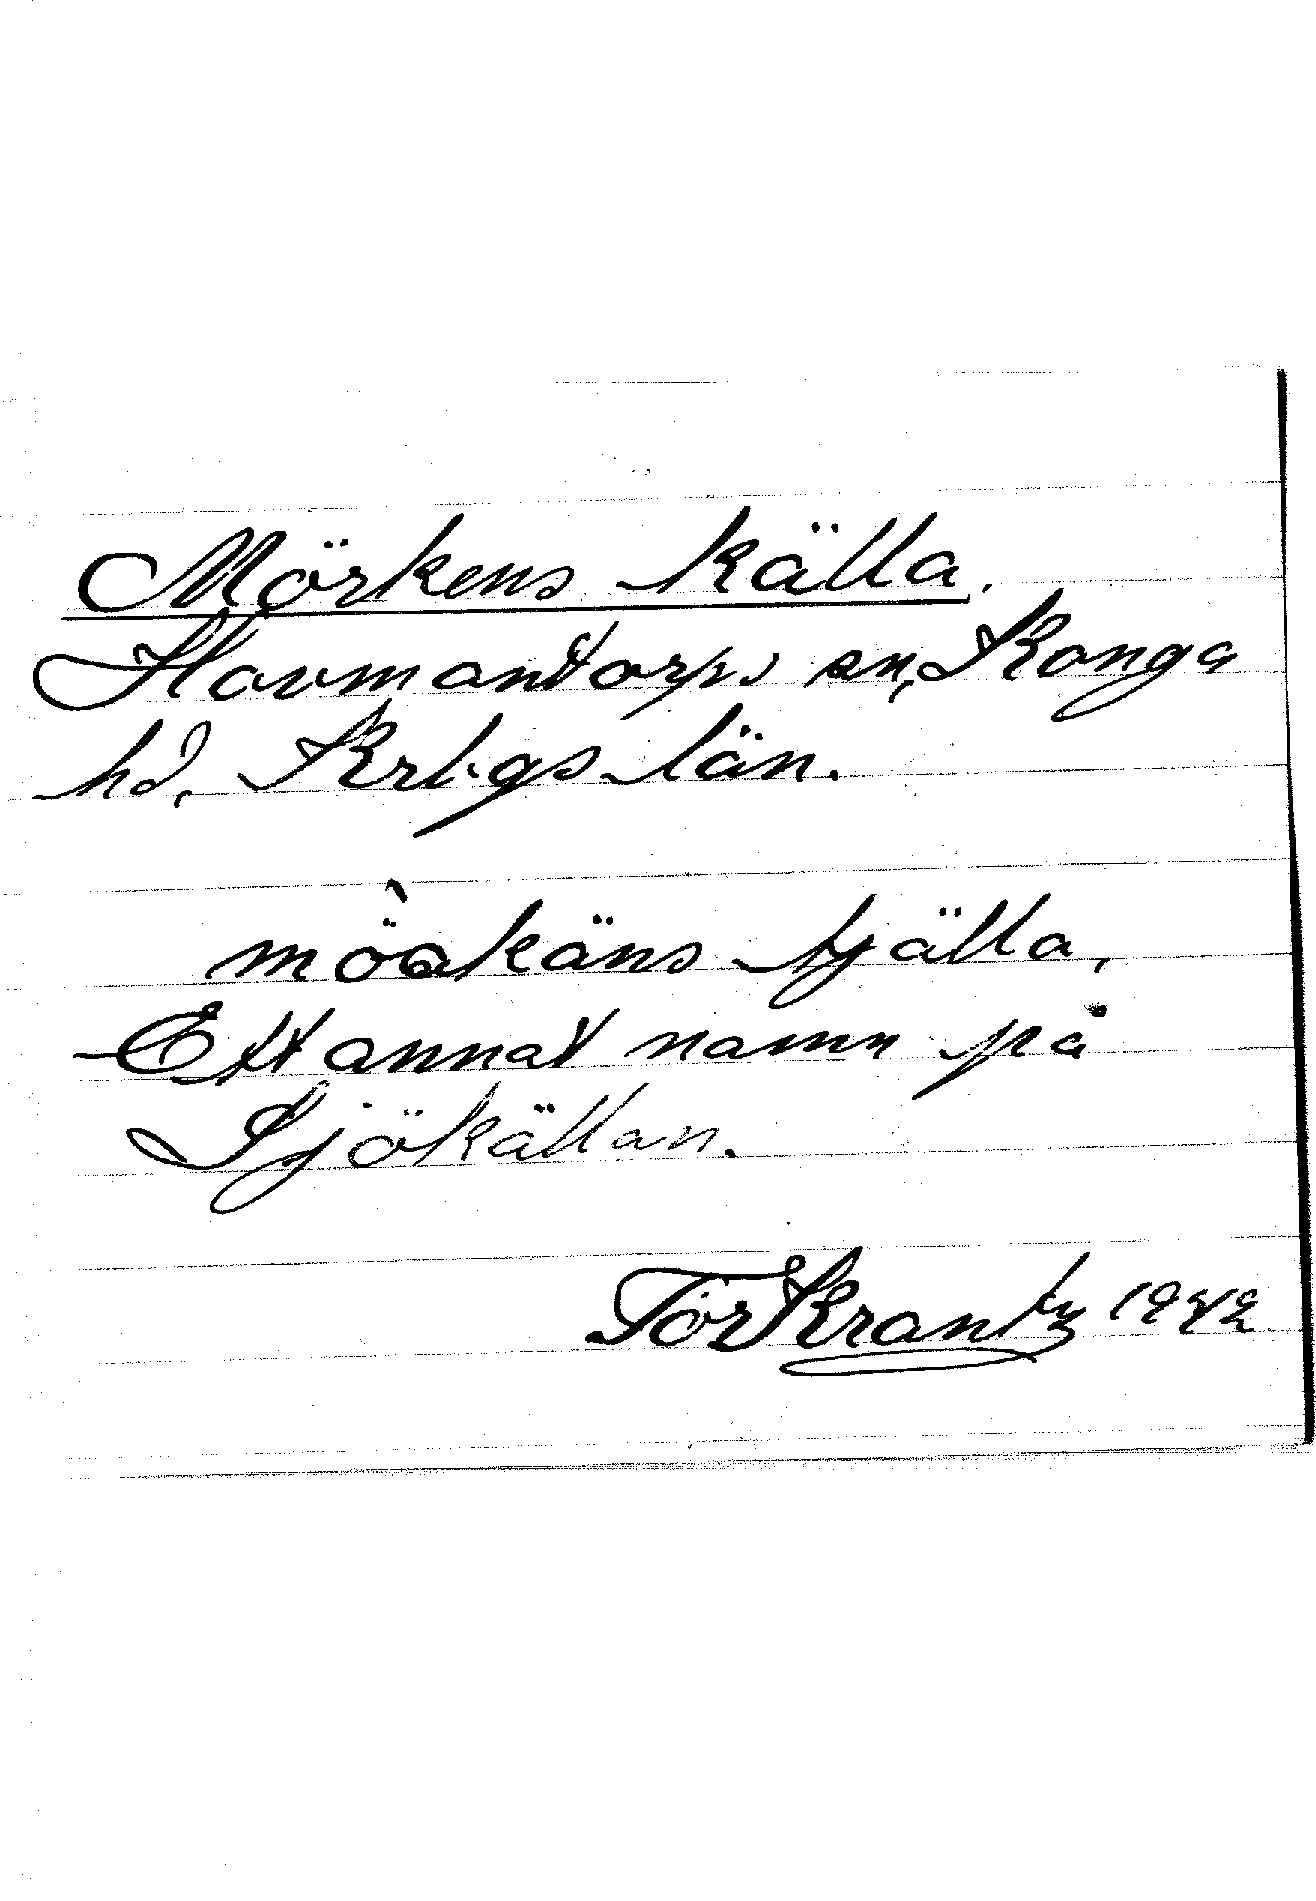 Mörkens källa.
Hovmantorps sn, Konga
hd, Krbgs län.
möakäns tjälla,
Ett annat namn på
Sjökällan.
Tör Krantz 1942